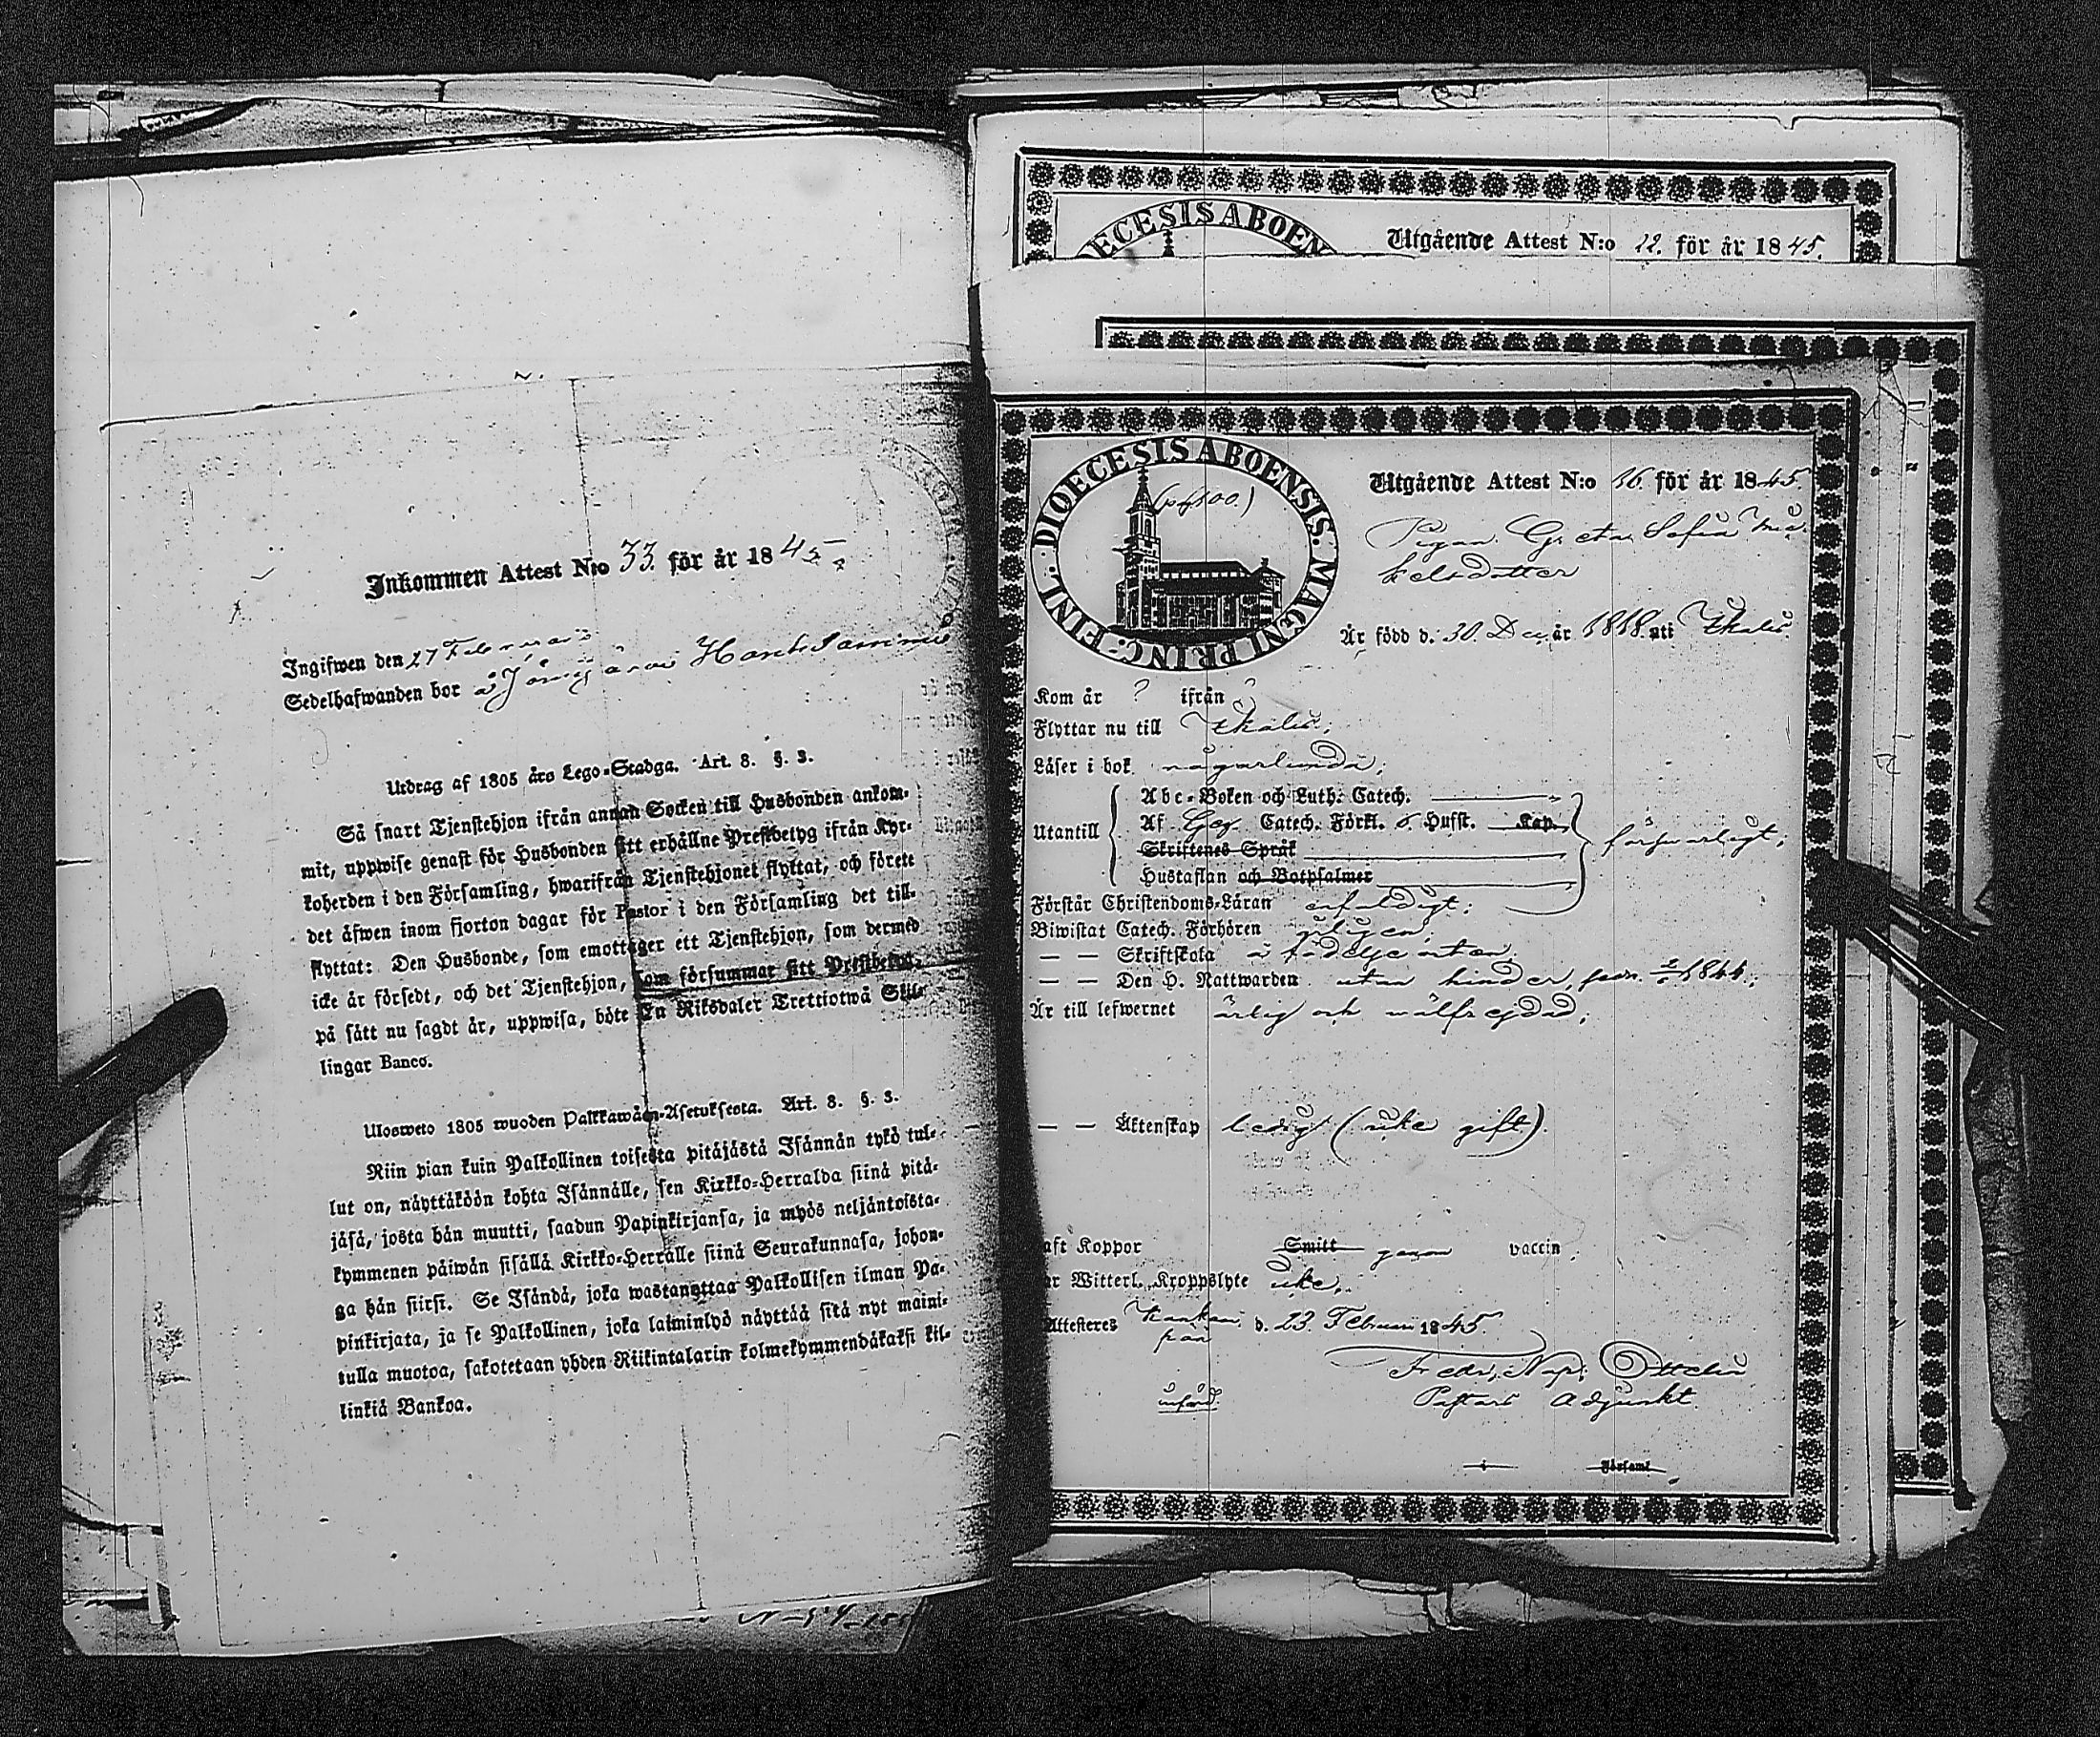 Inkommen Attest N:o 33. för år 1845
Ingifwen den 27 Februarii
Sedelhafwanden bor å
Utdrag af 1805 års Lego-Stadga. Art. 8. §. 3.
Så snart Tjenstehjon ifrån annan Socken till Husbonden ankom-
mit, uppwise genast för Husbonden sitt erhållne Prestbetyg ifrån Kyr-
koherden i den Församling, hwarifrån Tjenstehjonet flyttat, och förete
det äfwen inom fjorton dagar för Pastor i den Församling det till-
flyttat: Den Husbonde, som emottager ett Tjenstehjon, som dermed
icke är försedt, och det Tjenstehjon, som försummar sitt Prestbetyg,
på sätt nu sagdt är, uppwisa, böte En Riksdaler Trettiotwå Skil-
lingar Banco.
Ulosweto 1805 wuoden Palkkawäen-Asetuksesta. Art. 8. §. 3.
Niin pian kuin Palkollinen toisesta pitäjästä Isännän tykö tul-
lut on, näyttäköön kohta Isännälle, sen Kirkko-Herralda siinä pitä-
jäsä, josta hän muutti, saadun Papinkirjansa, ja myös neljäntoista-
kymmenen päiwän sisällä Kirkko-Herralle siinä Seurakunnasa, johon-
ga hän siirsi. Se Isändä, joka wastanottaa Palkollisen ilman Pa-
pinkirjata, ja se Palkollinen, joka laiminlyö näyttää sitä nyt maini-
tulla muotoa, sakotetaan yhden Riikintalarin kolmekymmendäkaksi kil-
linkiä Bankoa.
DIECESIS ABOEN
Utgående Attest N:o 22. för år 1845.
DIOECESIS ABOENSIS. MAGNI PRINC: FINL.
Utgående Attest N:o 16. för år 1845.
Pigan Greta Sofia Mic-
kelsdotter
Är född d. 30. Dec. år 1818. uti Ikalis.
Kom år ? ifrån ?
Flyttar nu till Ikalis;
Läser i bok någorlunda;
Utantill
Abc-Boken och Luth. Catech.
Af Gez. Catech. Förkl. o. Hufst. Kap.
Skriftenes Språk
Hustaflan och Botpsalmer
försvarligt;
Förstår Christendoms-Läran enfaldigt;
Biwistat Catech. Förhören årligen;
— — Skriftskola å födelseorten;
— — Den H. Nattwarden utan hinder, 1844;
Är till lefwernet ärlig och wälfrejdad;
— — Äktenskap ledig (icke gift).
aft Koppor Smitt genom vaccin
ar Witterl. Kroppslyte icke.
Attesteres Kankaan
pää d. 23. Februari 1845.
Fredr. Nap. Ottelin
Pastors Adjunkt.
införd.
i Församl.